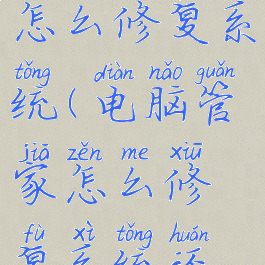 怎么修复系
tǒng diàn nǎo guǎn
统(电脑管
jiā zěn me xiū
家怎么修
fù xì tǒng huán
复系统还